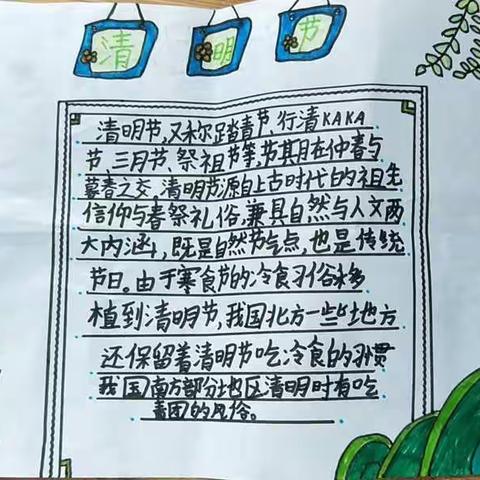 清明节
清明节,又称踏青节、行清KAKA
节、三月节、祭祖节等,节期在仲春与
暮春之交。清明节源自上古时代的祖先
信仰与春祭礼俗,兼具自然与人文两
大内涵,既是自然节气点,也是传统
节日。由于寒食节的冷食习俗移
植到清明节,我国北方一些地方
还保留着清明节吃冷食的习惯
我国南方部分地区清明时有吃
青团的风俗。